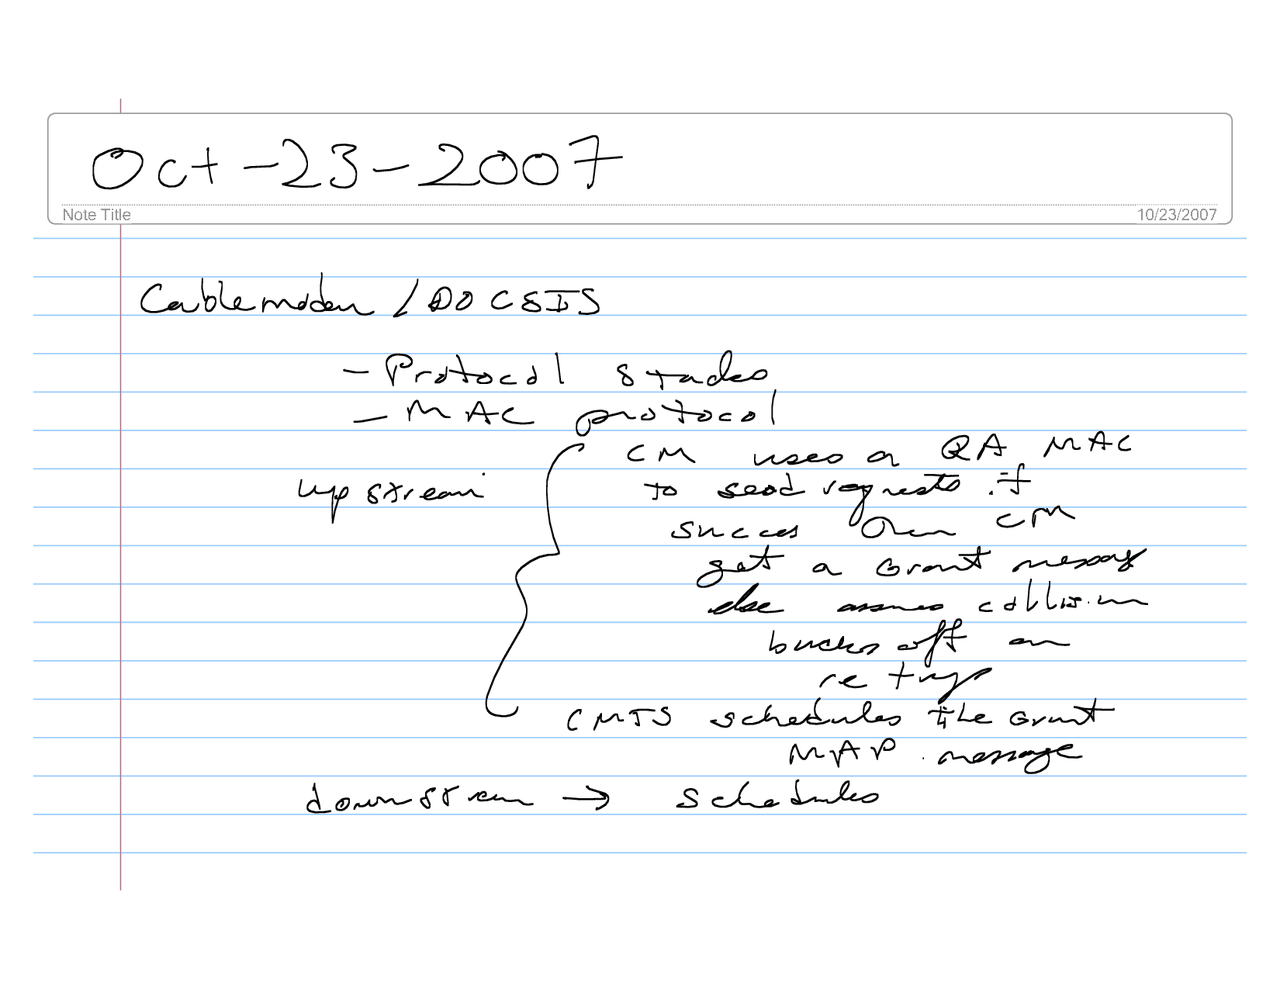 Oct-23-2007
Note Title 10/23/2007
Cablemodem / DOCSIS
- Protocol stacks
- MAC protocol
CM uses a QA MAC
upstream to send requests if
success then CM
get a Grant message
else assumes collision
backs off an
retrys
CMTS schedules the Grant
MAP message
downstream → schedules